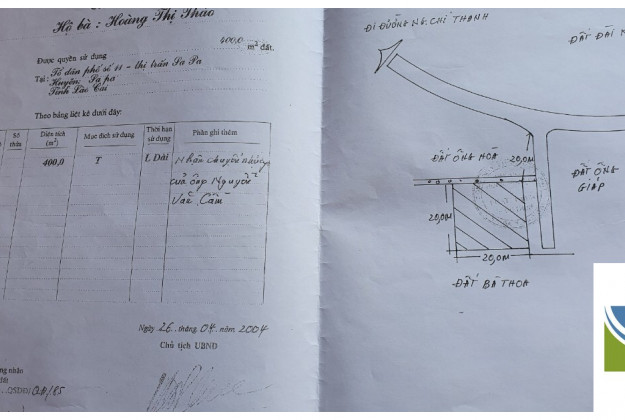 Hộ bà: Hoàng Thị Thảo
400,0 m² đất.
Được quyền sử dụng
Tại: Tổ dân phố số 11 - thị trấn Sa Pa
Huyện: Sa pa
Tỉnh Lào Cai
Theo bảng liệt kê dưới đây:
Số thửa
Diện tích (m²)
Mục đích sử dụng
Thời hạn sử dụng
Phần ghi thêm
400,0
T
L Dài
Nhận chuyển nhượng
của ông Nguyễn
Văn Cầm
Ngày 26 tháng 04 năm 2004
Chủ tịch UBND
QSDĐ/
ĐI ĐƯỜNG NG. CHÍ THANH
ĐẤT ĐÀI
ĐẤT ÔNG HOÀ
20,0M
ĐẤT ÔNG
GIÁP
20,0M
20,0M
ĐẤT BÀ THOA